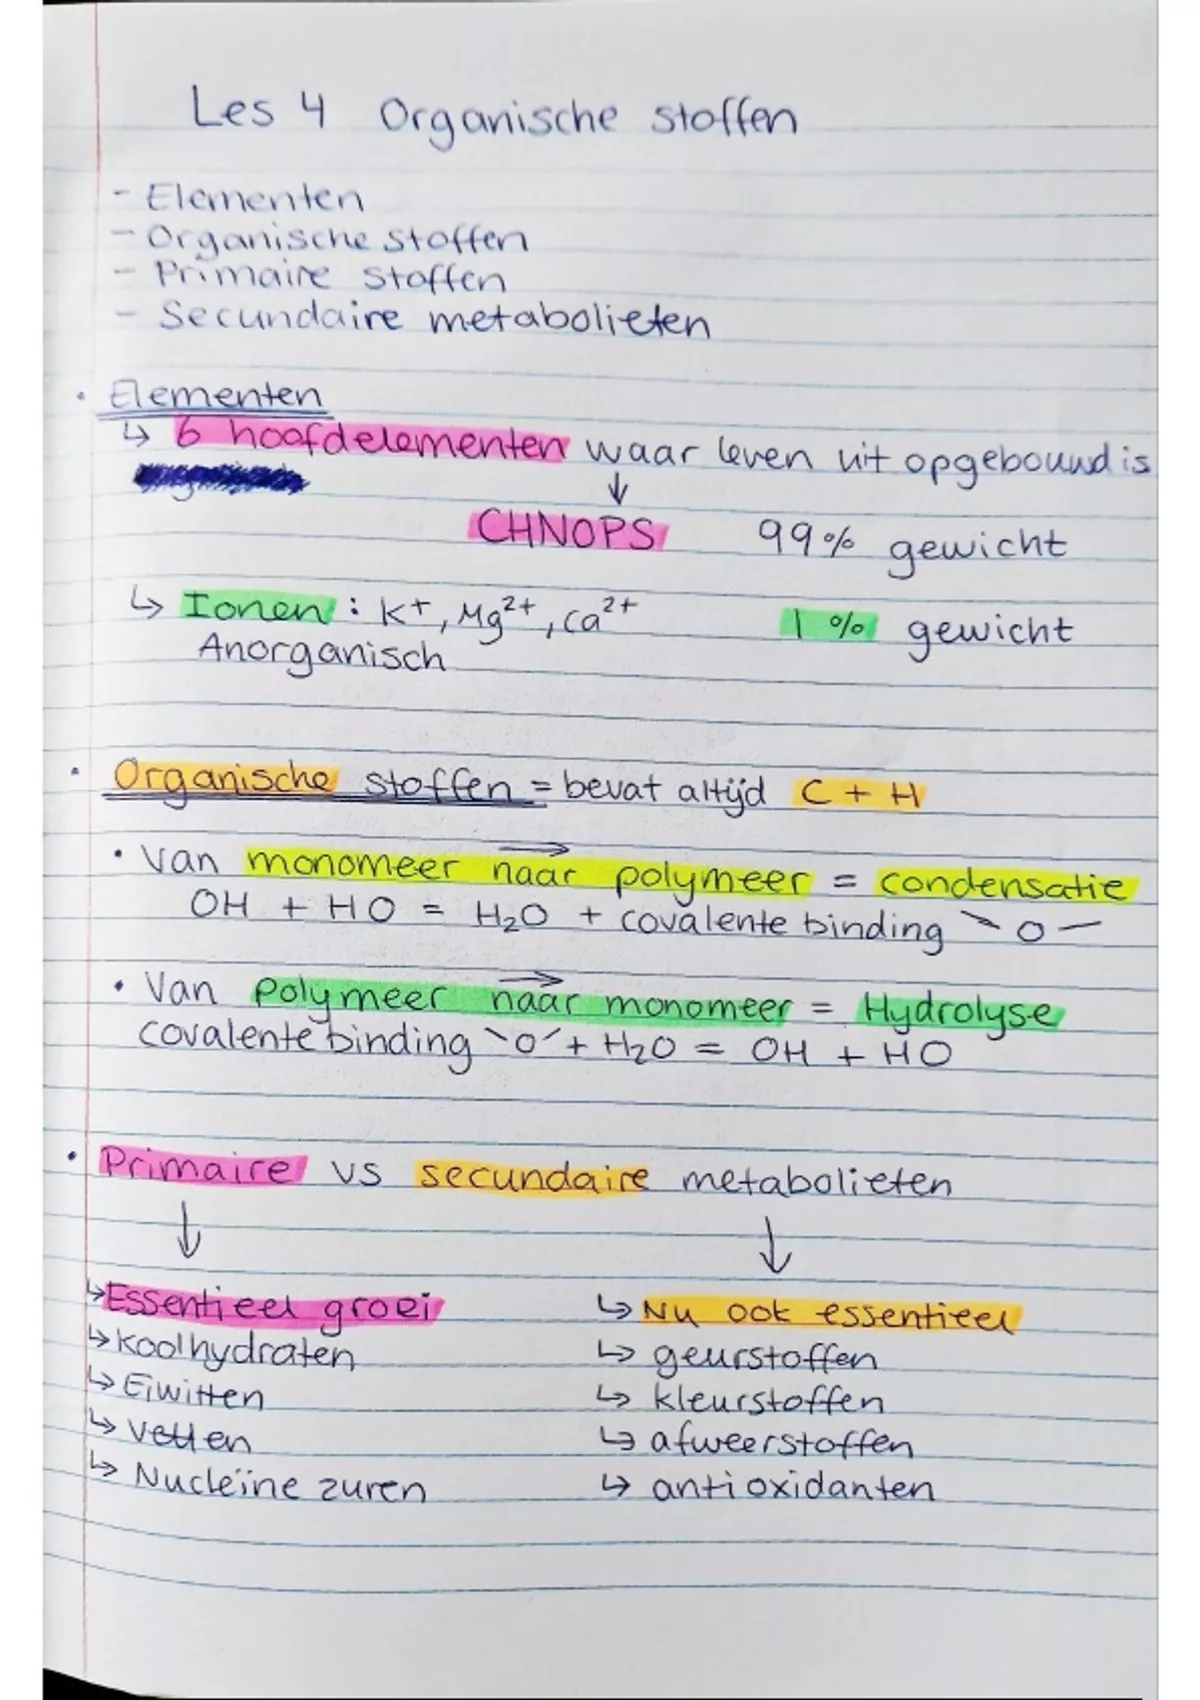 Les 4 Organische stoffen
- Elementen
- Organische stoffen
- Primaire stoffen
- Secundaire metabolieten
• Elementen
↳ 6 hoofdelementen waar leven uit opgebouwd is
↓
CHNOPS 99% gewicht
↳ Ionen: K+, Mg²+, Ca²+ 1% gewicht
Anorganisch
• Organische stoffen = bevat altijd C + H
• Van monomeer naar polymeer = condensatie
OH + HO = H₂O + covalente binding \ O /
• Van polymeer naar monomeer = Hydrolyse
covalente binding \O/ + H₂O = OH + HO
• Primaire vs secundaire metabolieten
↓ ↓
↳ Essentieel groei ↳ Nu ook essentieel
↳ Koolhydraten ↳ geurstoffen
↳ Eiwitten ↳ kleurstoffen
↳ Vetten ↳ afweerstoffen
↳ Nucleïne zuren ↳ antioxidanten